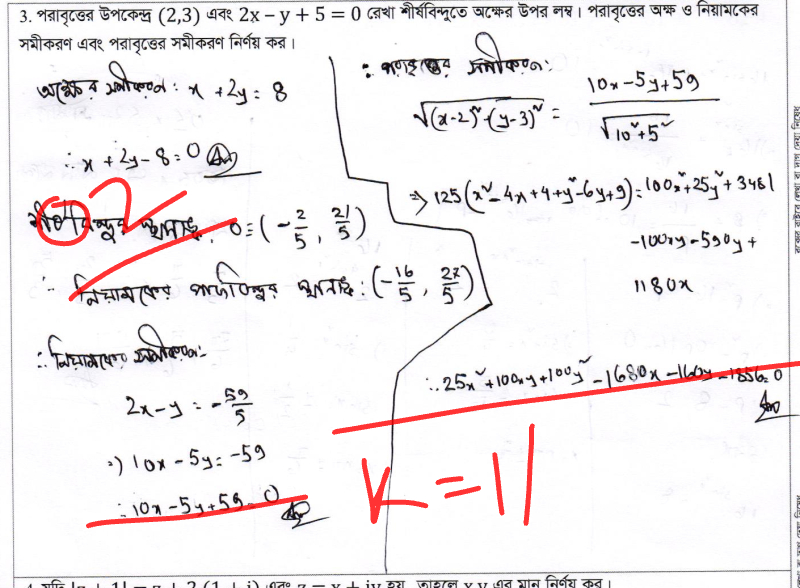 3. পরাবৃত্তের উপকেন্দ্র (2,3) এবং 2x – y + 5 = 0 রেখা শীর্ষবিন্দুতে অক্ষের উপর লম্ব। পরাবৃত্তের অক্ষ ও নিয়ামকের
সমীকরণ এবং পরাবৃত্তের সমীকরণ নির্ণয় কর।
অক্ষের সমীকরণ: x + 2y = 8
∴ x + 2y - 8 = 0 (Ans)
2
শীর্ষবিন্দুর স্থানাঙ্ক, ≡ (-2/5, 21/5)
∴ নিয়ামকের পাদবিন্দুর স্থানাঙ্ক: (-16/5, 27/5)
∴ নিয়ামকের সমীকরণ:
2x - y = -59/5
⇒) 10x - 5y = -59
∴ 10x - 5y + 59 = 0 (Ans)
∴ পরাবৃত্তের সমীকরণ:
√(x-2)² + (y-3)² = 10x - 5y + 59 / √10² + 5²
⇒ 125(x² - 4x + 4 + y² - 6y + 9) = 100x² + 25y² + 3481
- 100xy - 590y +
1180x
∴ 25x² + 100xy + 100y² - 1680x - 160y - 1856 = 0
Ans
K = 11